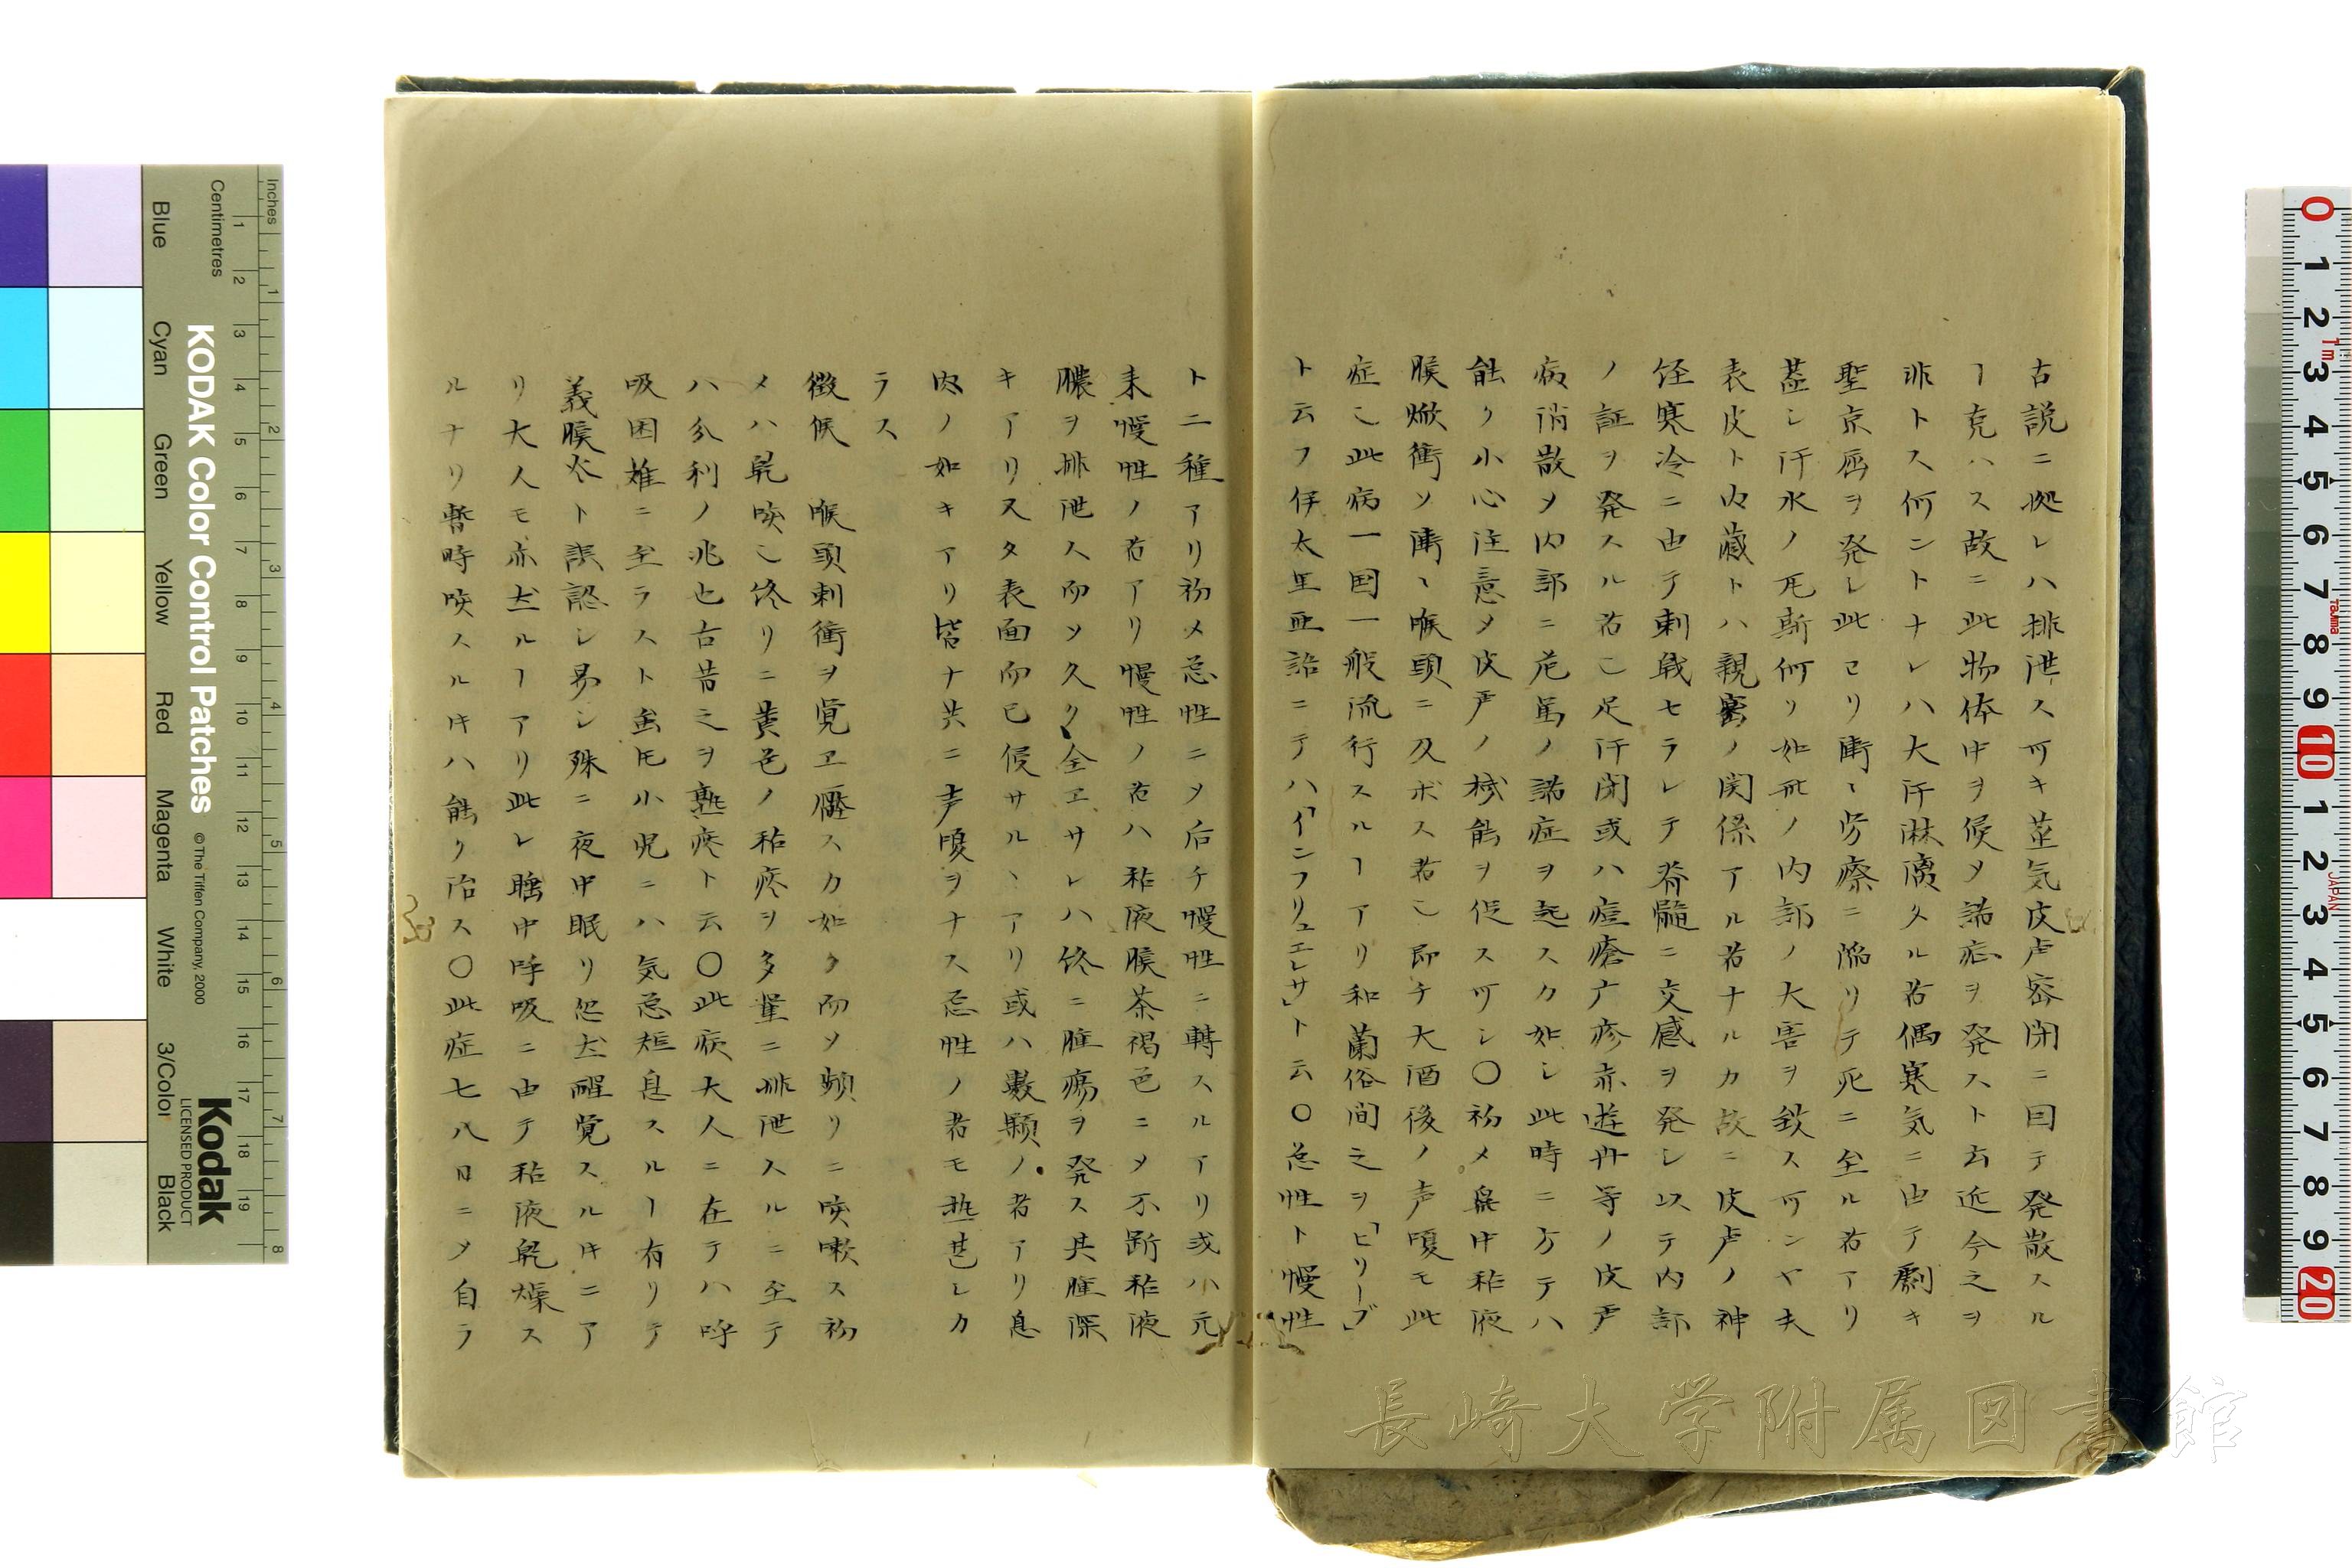 古説ニ拠レハ排泄ス可キ蒸気皮膚密閉ニ因テ発散スル
ヿ克ハス故ニ此物体中ヲ侵〆諸症ヲ発スト云近今之ヲ
非トス何ントナレハ大汗淋漓タル者偶寒気ニ由テ劇キ
ヲ発シ此ヨリ漸々労瘵ニ陥リテ死ニ至ル者アリ
蓋シ汗水ノ斯何ソ如此ノ内部ノ大害ヲ致ス可ンヤ夫
表皮ト内蔵トハ親密ノ関係アル者ナルカ故ニ皮膚ノ神
経寒冷ニ由テ刺戟セラレテ脊髄ニ交感ヲ発シ以テ内部
ノ証ヲ発スル者也足汗閉或ハ痘瘡广疹亦遊丹等ノ皮膚
病消散〆内部ニ危篤ノ諸症ヲ起スカ如シ此時ニ方テハ
能ク小心注意〆皮膚ノ機能ヲ促ス可シ〇初メ鼻中粘液
膜焮衝ソ漸々喉頭ニ及ボス者也即チ大酒後ノ声嗄モ此
症也此病一国一般流行スルヿアリ和蘭俗間之ヲ「ヒリーブ」
ト云フ伊太里亜語ニテハ「インフリュエレサ」ト云〇急性ト慢性
ト二種アリ初メ急性ニ〆后チ慢性ニ轉スルアリ或ハ元
来慢性ノ者アリ慢性ノ者ハ粘液膜茶褐色ニ〆不断粘液
膿ヲ排泄ス而〆久ク全ヱサレハ終ニ腫瘍ヲ発ス其腫深
キアリスタ表面而已侵サルヽアリ或ハ數顆ノ者アリ息
肉ノ如キアリ皆ナ共ニ声嗄ヲナス急性ノ者モ热甚シカ
ラス
徴候　喉頭刺衝ヲ覚ヱスカ如ク而〆頻リニ咳嗽ス初
メハ乾咳也終リニ黄色ノ粘痰ヲ多量ニ排泄スルニ至テ
ハ分利ノ兆也古昔之ヲ熟痰ト云〇此病大人ニ在テハ呼
吸困難ニ至ラスト虽𪜈小児ニハ気急短息スルヿ有リテ
義膜炎ト誤認シ易シ殊ニ夜中眠リ忽尓醒覚スルキニア
リ大人モ亦尓ルヿアリ此レ睡中呼吸ニ由テ粘液乾燥ス
ルナリ暫時咳スルキハ能ク治ス〇此症七八日ニ〆自ラ
KODAK Color Control Patches
© The Tiffen Company, 2000
Kodak
LICENSED PRODUCT
Inches
Centimetres
Blue
Cyan
Green
Yellow
Red
Magenta
White
3/Color
Black
長崎大学附属図書館